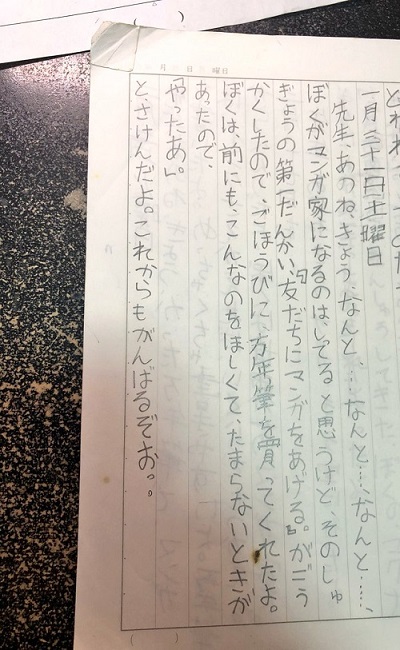 月 日 曜日
一月三十一日土曜日
先生、あのね、きょう、なんと……なんと……、なんと……、
ぼくがマンガ家になるのは、してると思うけど、そのしゅ
ぎょうの第一だんかい、『友だちにマンガをあげる。』がごう
かくしたので、ごほうびに、万年筆を買ってくれたよ。
ぼくは、前にも、こんなのをほしくて、たまらないときが
あったので、
『やったあ。』
とさけんだよ。これからもがんばるぞお。。